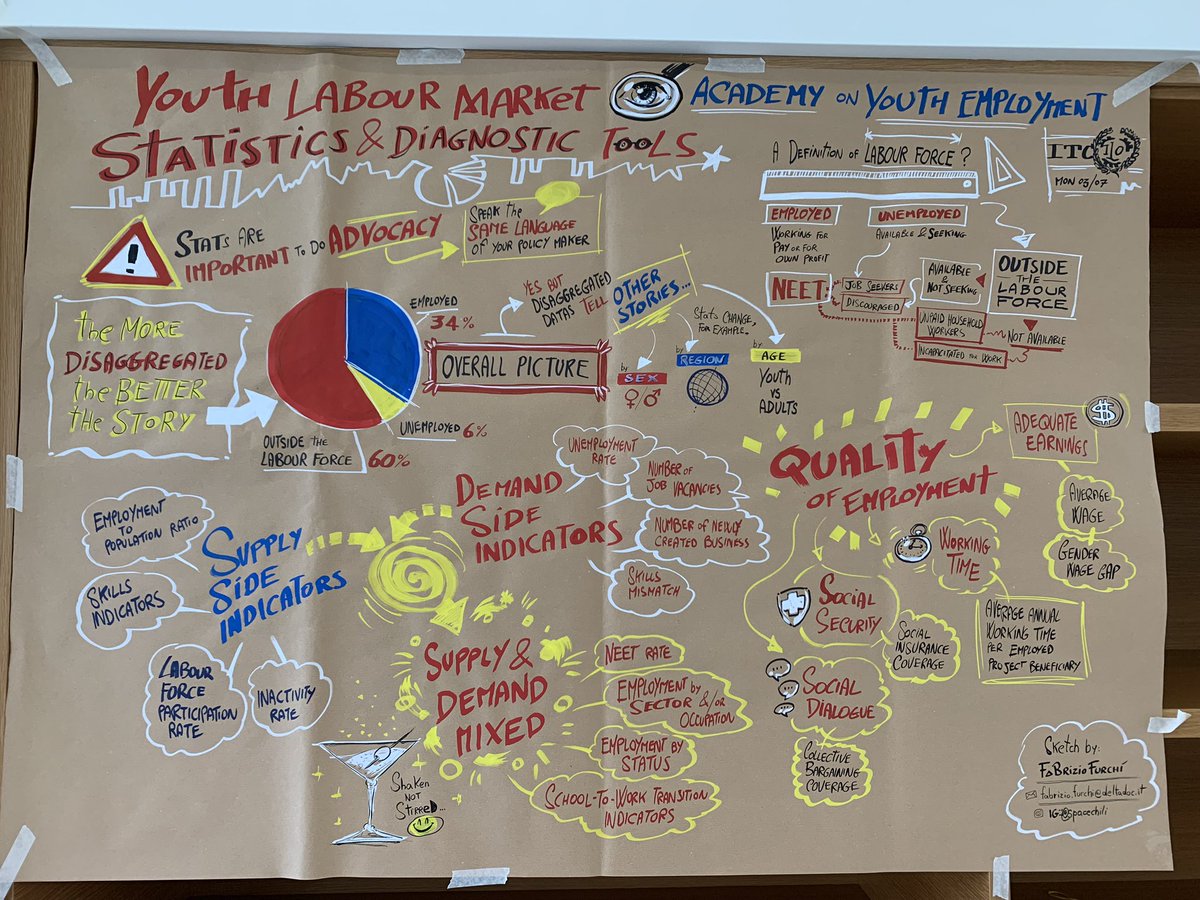 YOUTH LABOUR MARKET
STATISTICS & DIAGNOSTIC TOOLS
ACADEMY ON YOUTH EMPLOYMENT
A DEFINITION OF LABOUR FORCE?
ITC
MON 03/07
EMPLOYED
WORKING FOR
PAY OR FOR
OWN PROFIT
UNEMPLOYED
AVAILABLE & SEEKING
OUTSIDE
THE
LABOUR
FORCE
NEET
JOB SEEKERS
DISCOURAGED
AVAILABLE
& NOT
SEEKING
UNPAID HOUSEHOLD
WORKERS
NOT AVAILABLE
INCAPACITATED FOR WORK
!
STATS ARE
IMPORTANT TO DO ADVOCACY
SPEAK THE
SAME LANGUAGE
OF YOUR POLICY MAKER
THE MORE
DISAGGREGATED
THE BETTER
THE STORY
EMPLOYED
34%
UNEMPLOYED 6%
OUTSIDE THE
LABOUR FORCE 60%
OVERALL PICTURE
YES BUT
DISAGGREGATED
DATAS TELL
OTHER
STORIES...
STATS CHANGE,
FOR EXAMPLE...
by
SEX
♀/♂
by
REGION
by
AGE
YOUTH
VS
ADULTS
SUPPLY
SIDE
INDICATORS
EMPLOYMENT
TO
POPULATION RATIO
SKILLS
INDICATORS
LABOUR
FORCE
PARTICIPATION
RATE
INACTIVITY
RATE
DEMAND
SIDE
INDICATORS
UNEMPLOYMENT
RATE
NUMBER OF
JOB VACANCIES
NUMBER OF NEWLY
CREATED BUSINESS
SKILLS
MISMATCH
SUPPLY &
DEMAND
MIXED
NEET RATE
EMPLOYMENT BY
SECTOR &/OR
OCCUPATION
EMPLOYMENT BY
STATUS
SCHOOL-TO-WORK TRANSITION
INDICATORS
SHAKEN
NOT
STIRRED...
QUALITY
OF EMPLOYMENT
$
ADEQUATE
EARNINGS
AVERAGE
WAGE
GENDER
WAGE GAP
WORKING
TIME
AVERAGE ANNUAL
WORKING TIME
PER EMPLOYED
PROJECT BENEFICIARY
SOCIAL
SECURITY
SOCIAL
INSURANCE
COVERAGE
SOCIAL
DIALOGUE
COLLECTIVE
BARGAINING
COVERAGE
SKETCH BY:
FABRIZIO FURCHÍ
fabrizio.furchi@deltadoc.it